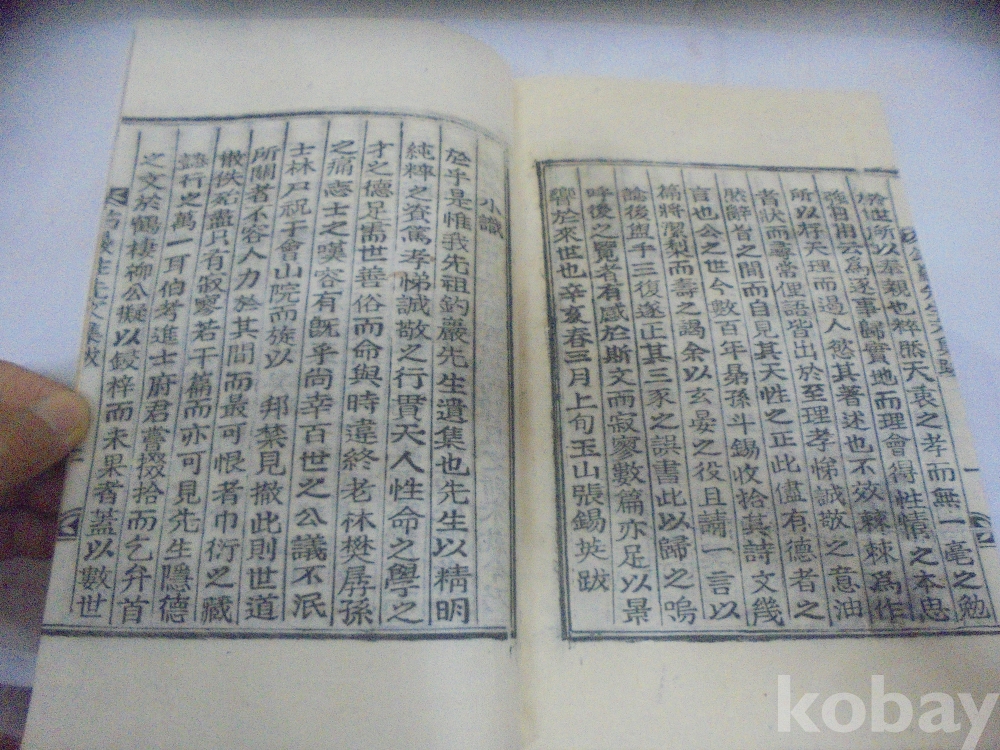 於世所以奉親也粹然天衷之孝而無一毫之勉
强日用云為遂事歸實地而理會得性情之本思
所以存天理而遏人慾其著述也不效棘棘為作
者狀而尋常俚語皆出於至理孝悌誠敬之意油
然解首之間而自見其天性之正此儘有德者之
言也公之世今數百年孫斗錫收拾其詩文幾
篇將㓗梨而壽之謁余以玄晏之役且請一言以
諗後與乎三復遂正其三豕之誤書此以歸之嗚
呼後之覽者有感於斯文而寂寥數篇亦足以景
響於來世也辛亥春三月上旬玉山張錫英跋
小識
於乎是惟我先祖釣巖先生遺集也先生以精明
純粹之資篤孝悌誠敬之行貫天人性命之學之
才之德足需世善俗而命與時違終老林樊孱孫
之痛志士之嘆容有旣乎尚幸百世之公議不泯
士林尸祝于會山院而旋以 邦禁見撤此則世道
所關者不容人力於其間而最可恨者巾衍之藏
散佚殆盡只有寂寥若干篇而亦可見先生隱德
諱行之萬一耳伯考進士府君嘗掇拾而乞弁首
之文於鶴棲柳公擬以鋟梓而未果者蓋以數世
kobay